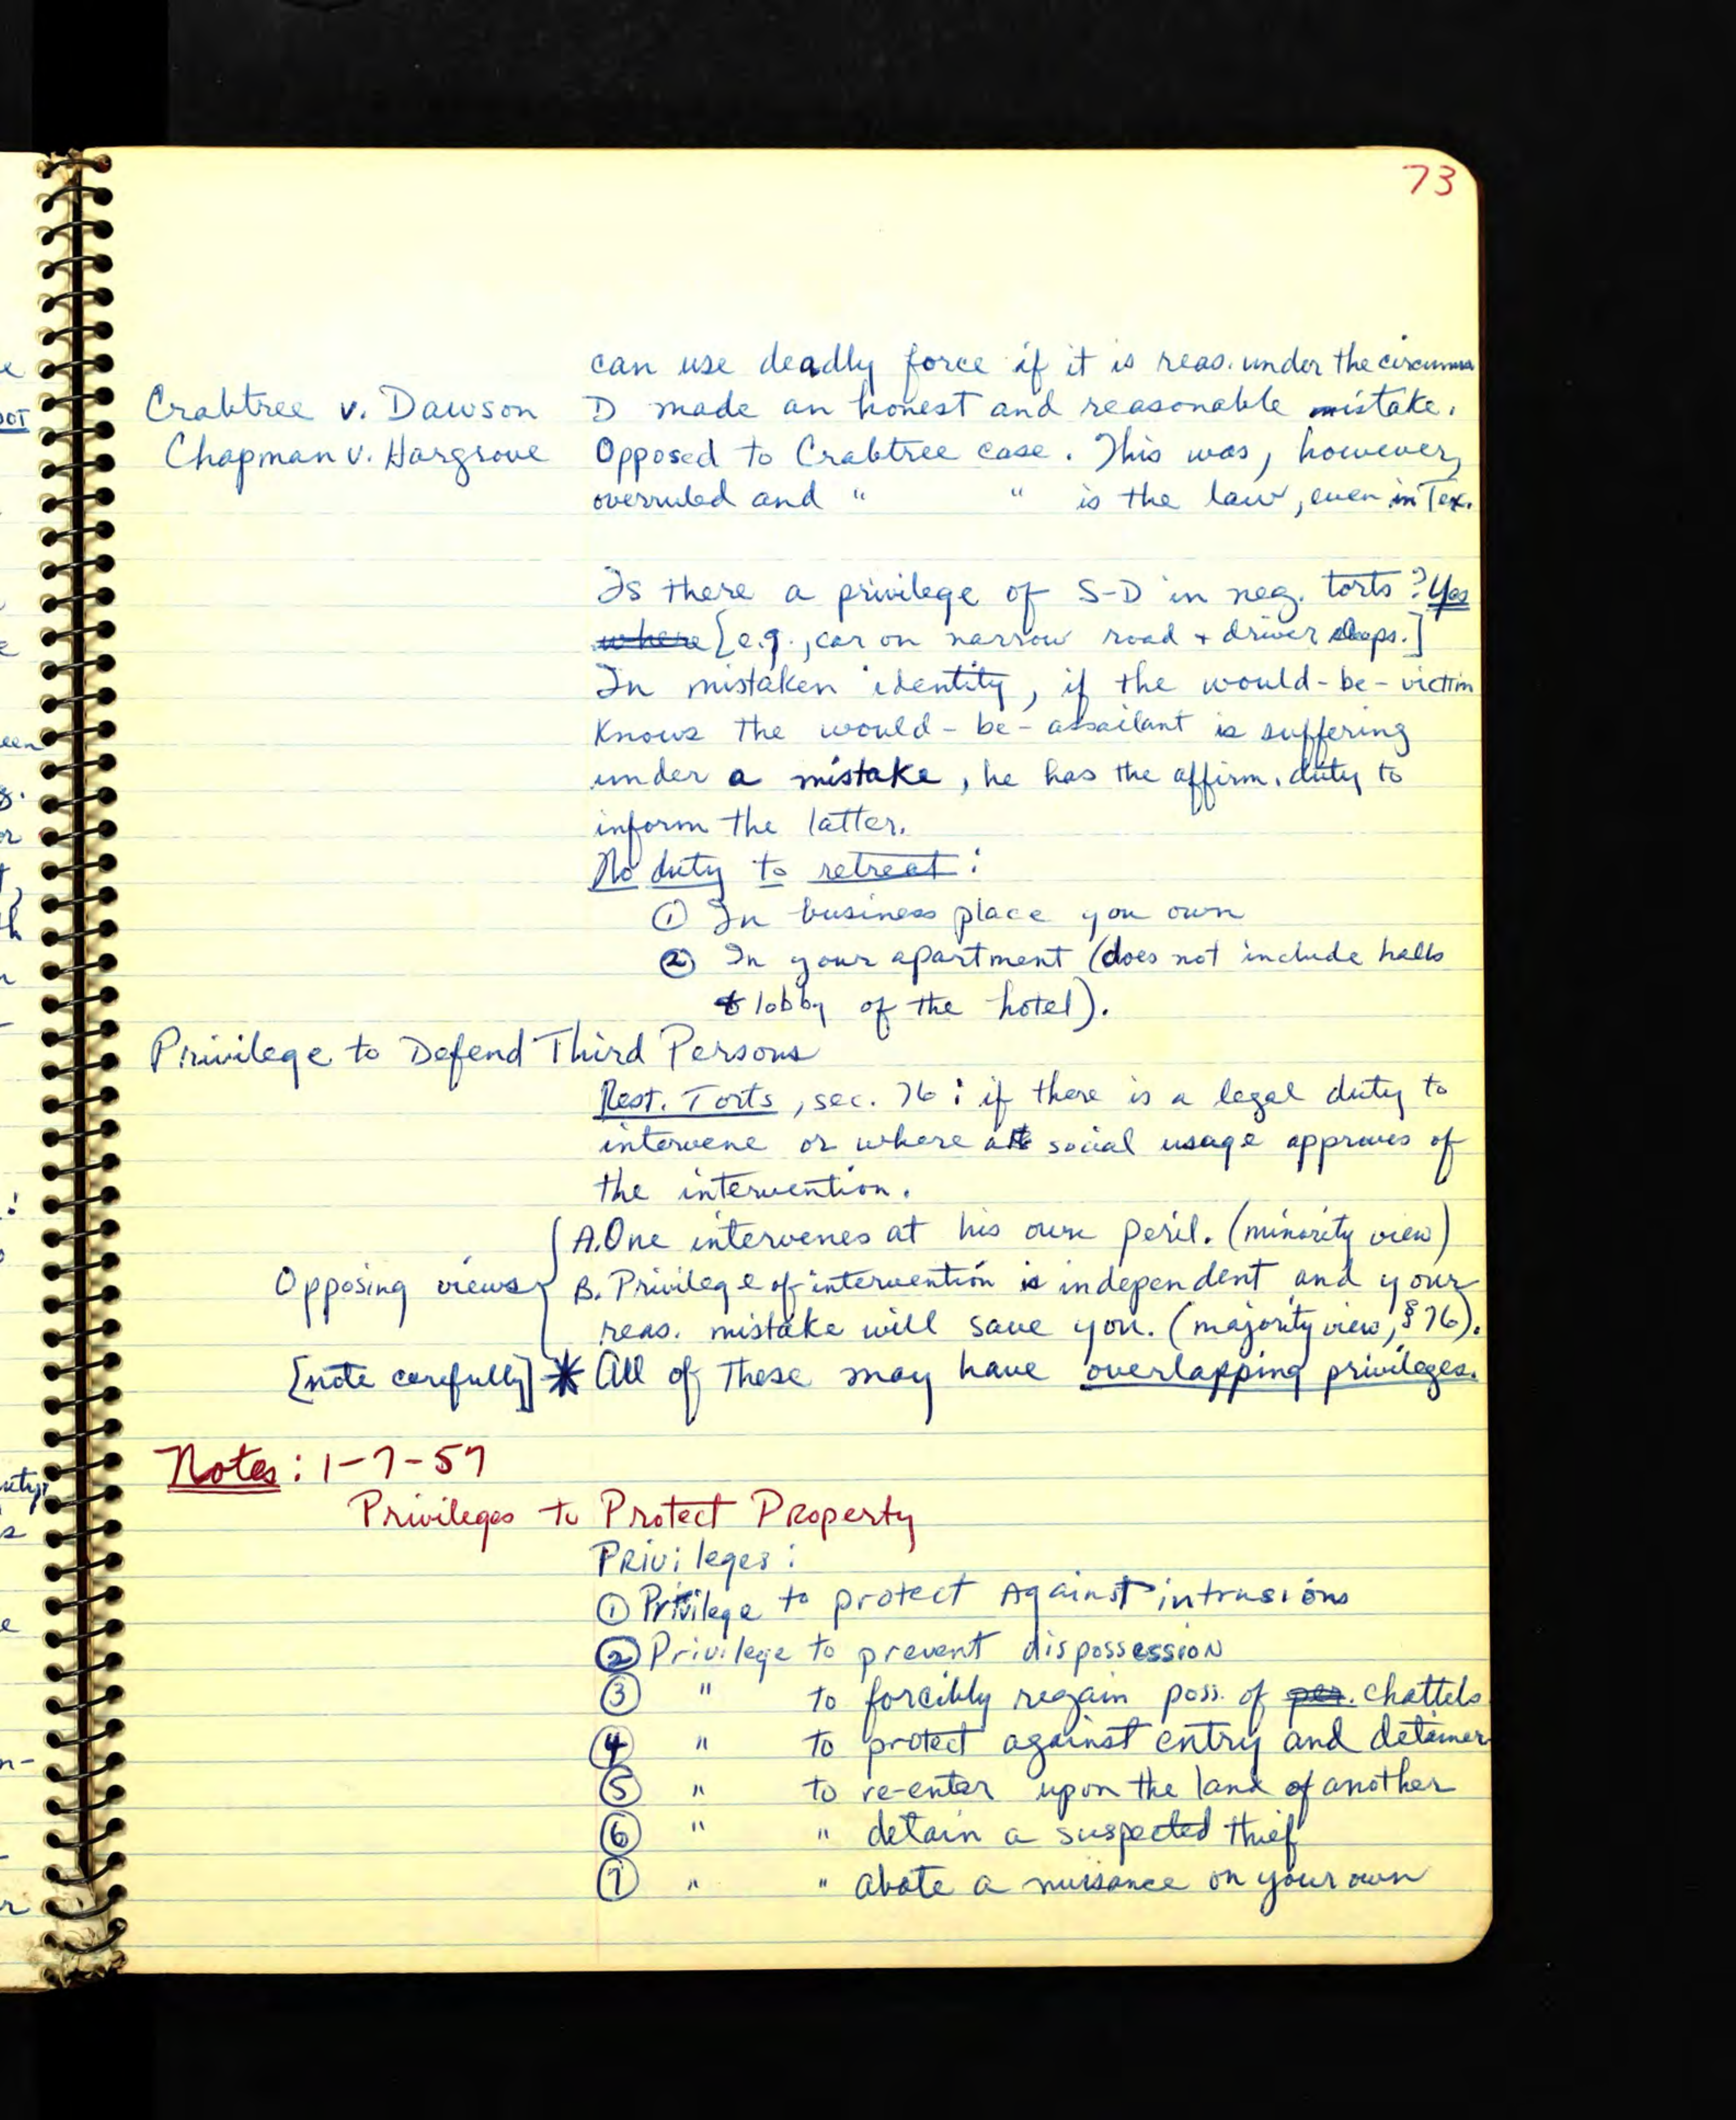 73
can use deadly force if it is reas. under the circums
Crabtree v. Dawson D made an honest and reasonable mistake.
Chapman v. Hargrove Opposed to Crabtree case. This was, however,
overruled and " " is the law, even in Tex.
Is there a privilege of S-D in neg. torts? Yes
where [e.g., car on narrow road + driver sleeps.]
In mistaken identity, if the would-be-victim
knows the would-be-assailant is suffering
under a mistake, he has the affirm. duty to
inform the latter.
No duty to retreat:
① In business place you own
② In your apartment (does not include halls
& lobby of the hotel).
Privilege to Defend Third Persons
Rest. Torts, sec. 76: if there is a legal duty to
intervene or where social usage approves of
the intervention.
A. One intervenes at his own peril. (minority view)
Opposing views B. Privilege of intervention is independent and your
reas. mistake will save you. (majority view, § 76).
[note carefully] * All of these may have overlapping privileges.
Notes: 1-7-57
Privileges to Protect Property
Privileges:
① Privilege to protect against intrusions
② Privilege to prevent dispossession
③ " to forcibly regain poss. of per. chattels
④ " to protect against entry and detainer
⑤ " to re-enter upon the land of another
⑥ " " detain a suspected thief
⑦ " " abate a nuisance on your own